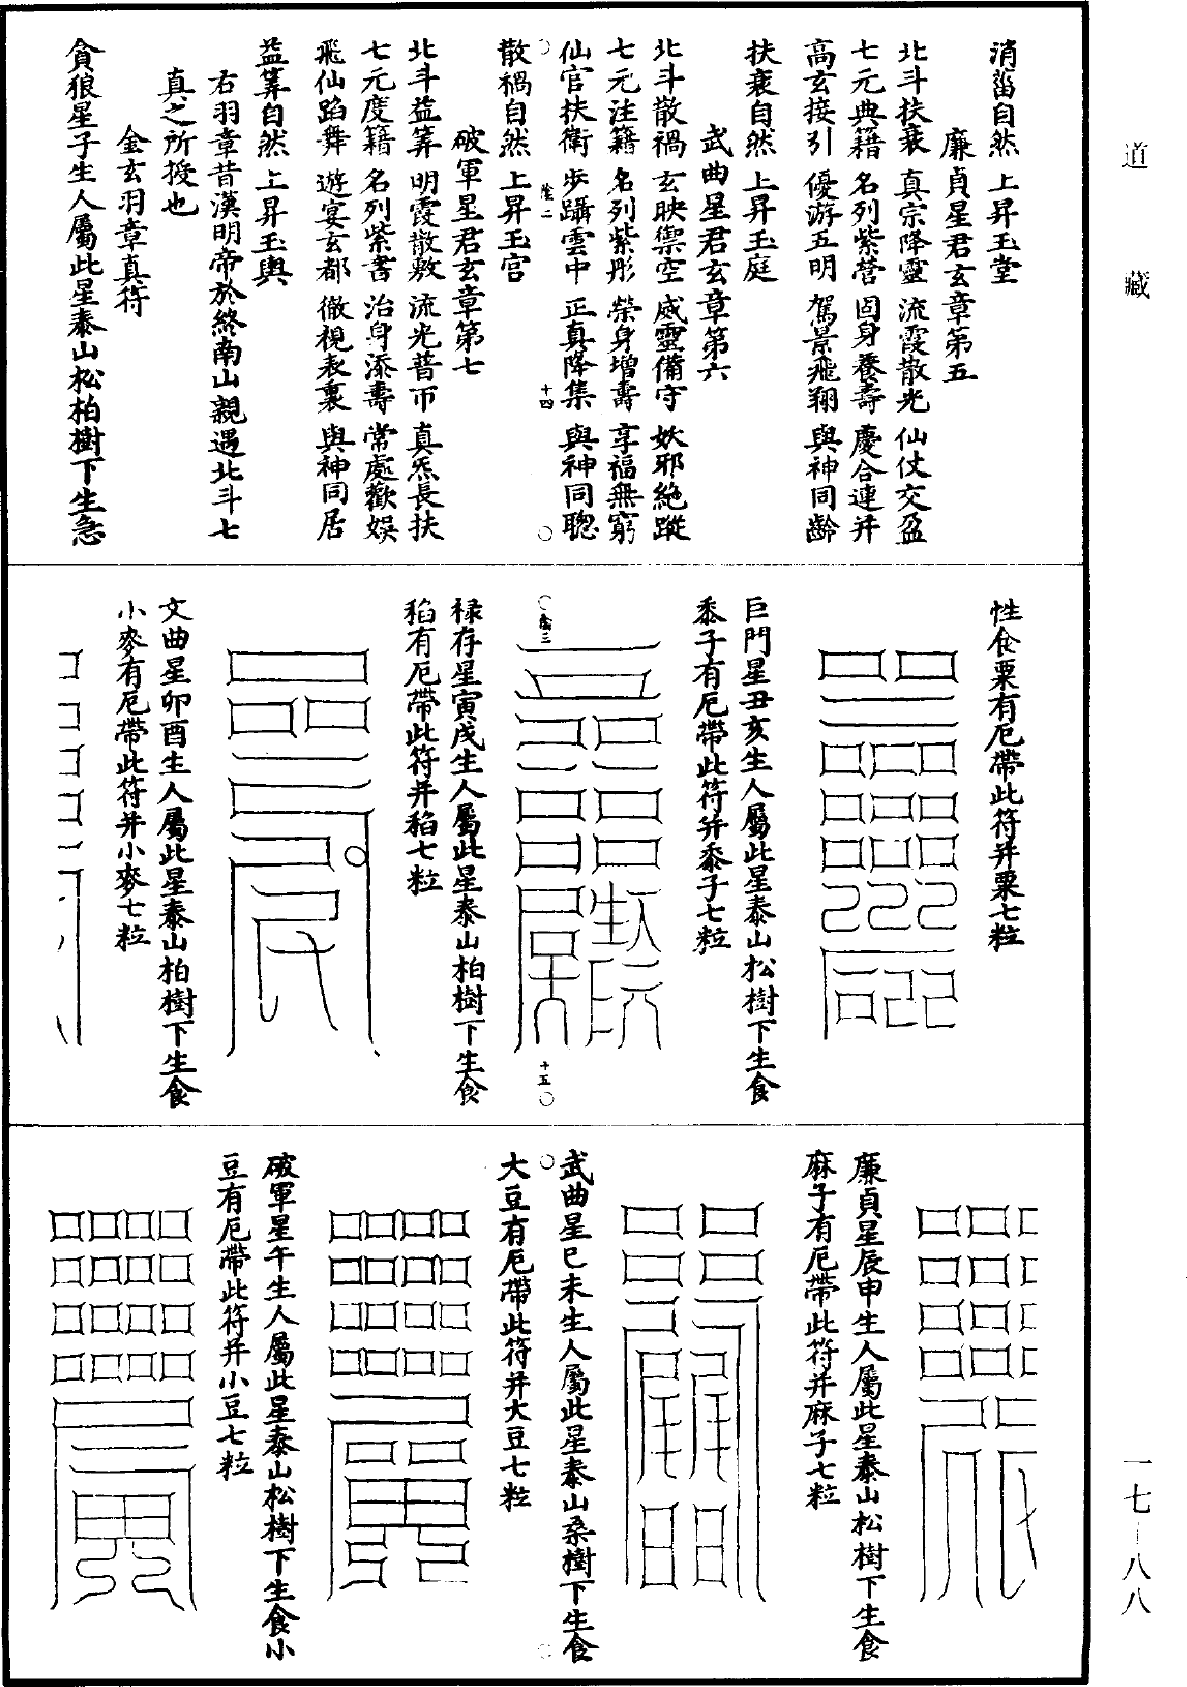 道藏
消災自然 上昇玉堂
廉貞星君玄章第五
北斗扶衰 真宗降靈 流霞散光 仙仗交盈
七元典籍 名列紫營 固身養壽 慶合連并
高玄接引 優游五明 駕景飛翔 與神同齡
扶衰自然 上昇玉庭
武曲星君玄章第六
北斗散禍 玄映禦空 威靈備守 妖邪絶蹤
七元注籍 名列紫彤 榮身增壽 享福無窮
仙官扶衛 步躡雲中 正真降集 與神同聰
陰二 十四
散禍自然 上昇玉宫
破軍星君玄章第七
北斗益筭 明霞散敷 流光普帀 真炁長扶
七元度籍 名列紫書 治身添壽 常處歡娱
飛仙蹈舞 遊宴玄都 徹視表裏 與神同居
益筭自然 上昇玉輿
右羽章昔漢明帝於終南山親遇北斗七
真之所授也
金玄羽章真符
貪狼星子生人屬此星泰山松柏樹下生急
性食粟有厄帶此符并粟七粒
巨門星丑亥生人屬此星泰山松樹下生食
黍子有厄帶此符并黍子七粒
三 十五
禄存星寅戌生人屬此星泰山柏樹下生食
稻有厄帶此符并稻七粒
文曲星卯酉生人屬此星泰山柏樹下生食
小麥有厄帶此符并小麥七粒
廉貞星辰申生人屬此星泰山松樹下生食
麻子有厄帶此符并麻子七粒
武曲星巳未生人屬此星泰山桑樹下生食
大豆有厄帶此符并大豆七粒
破軍星午生人屬此星泰山松樹下生食小
豆有厄帶此符并小豆七粒
一七—八八